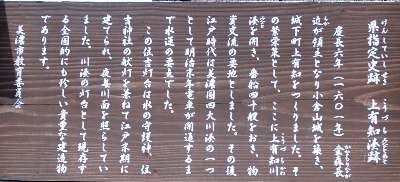 県指定史跡 上有知湊跡
慶長六年(一六〇一年)金森長
近が領主となり小倉山城を築き、
城下町上有知をつくりました。そ
の繁栄策として、ここに上有知川
湊を開き、番船四十艘をおき、物
資交流の要地としました。その後
江戸時代は美濃四大川湊の一つ
として明治末年電車が開通するま
で水運の要点でした。
この住吉灯台は水の守護神、住
吉神社の献灯を兼ねて江戸末期に
建てられ、夜毎川面を照らしてい
ました。川湊の灯台として現存す
る全国的にも珍しい貴重な建造物
であります。
美濃市教育委員会